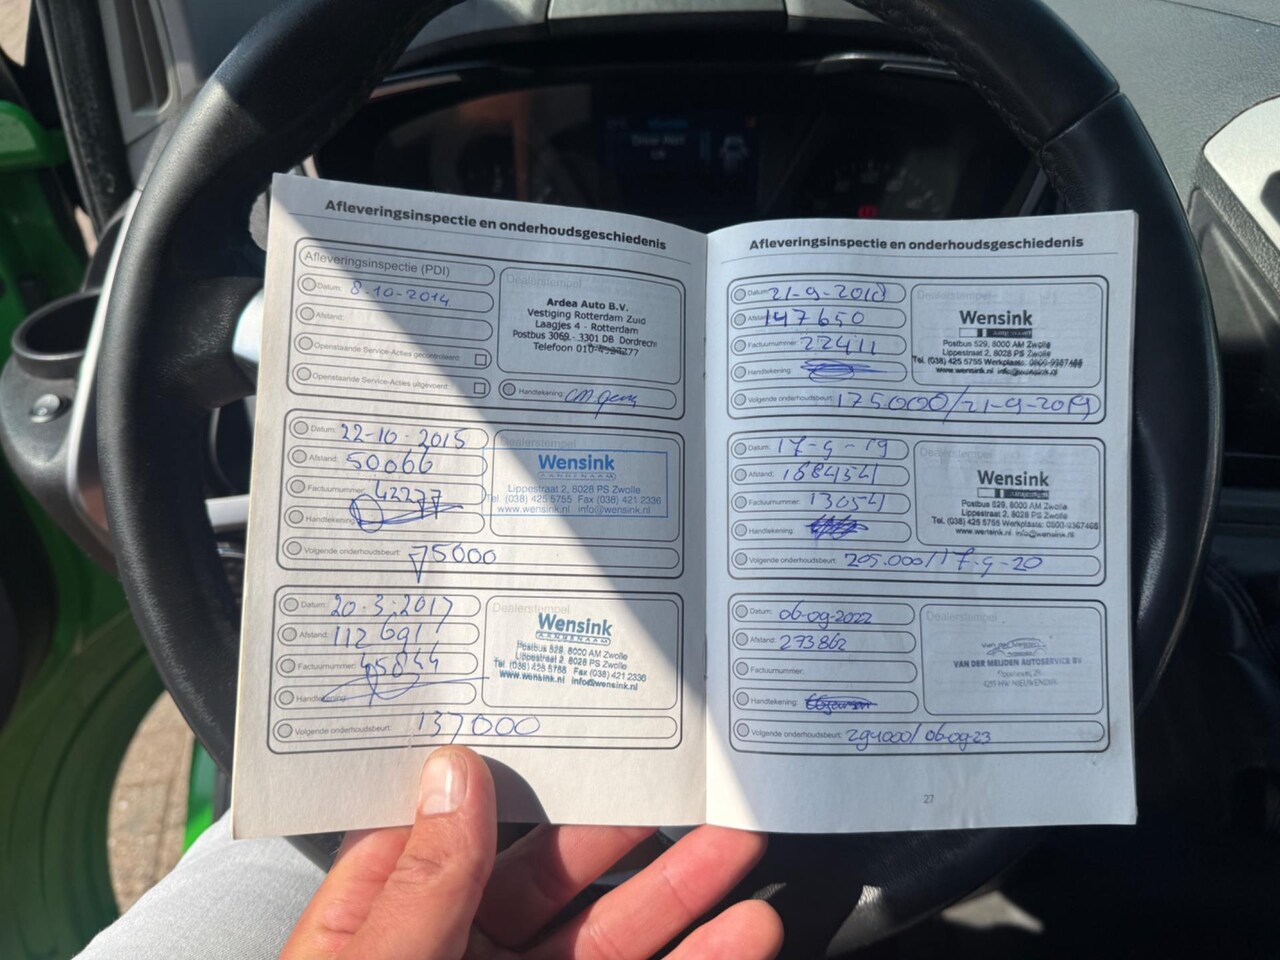 Afleveringsinspectie en onderhoudsgeschiedenis
Afleveringsinspectie (PDI)
Datum: 8-10-2014
Afstand:
Openstaande Service-Acties gecontroleerd:
Openstaande Service-Acties uitgevoerd:
Dealerstempel
Ardea Auto B.V.
Vestiging Rotterdam Zuid
Laagjes 4 - Rotterdam
Postbus 3069 - 3301 DB Dordrecht
Telefoon 010-
Handtekening:
Datum: 22-10-2015
Afstand: 50066
Factuurnummer: 42277
Handtekening:
Dealerstempel
Wensink
AANGENAAM
Lippestraat 2, 8028 PS Zwolle
Tel. (038) 425 5755 Fax (038) 421 2336
www.wensink.nl info@wensink.nl
Volgende onderhoudsbeurt: 75000
Datum: 20-3-2017
Afstand: 112691
Factuurnummer: 45844
Handtekening:
Dealerstempel
Wensink
AANGENAAM
Postbus 529, 8000 AM Zwolle
Lippestraat 2, 8028 PS Zwolle
Tel. (038) 425 5755 Fax (038) 421 2336
www.wensink.nl info@wensink.nl
Volgende onderhoudsbeurt: 137000
Afleveringsinspectie en onderhoudsgeschiedenis
Datum: 21-9-2018
Afstand: 147650
Factuurnummer: 22411
Handtekening:
Dealerstempel
Wensink
Postbus 529, 8000 AM Zwolle
Lippestraat 2, 8028 PS Zwolle
Tel. (038) 425 5755 Werkplaats:
www.wensink.nl info@wensink.nl
Volgende onderhoudsbeurt: 175.000/21-9-2019
Datum: 17-9-19
Afstand:
Factuurnummer: 13054
Handtekening:
Dealerstempel
Wensink
Postbus 529, 8000 AM Zwolle
Lippestraat 2, 8028 PS Zwolle
Tel. (038) 425 5755 Werkplaats:
www.wensink.nl info@wensink.nl
Volgende onderhoudsbeurt: 205.000/17-9-20
Datum: 06-09-2022
Afstand: 273862
Factuurnummer:
Handtekening:
Dealerstempel
VAN DER MEIJDEN AUTOSERVICE BV
Volgende onderhoudsbeurt: 294000/06-09-23
27